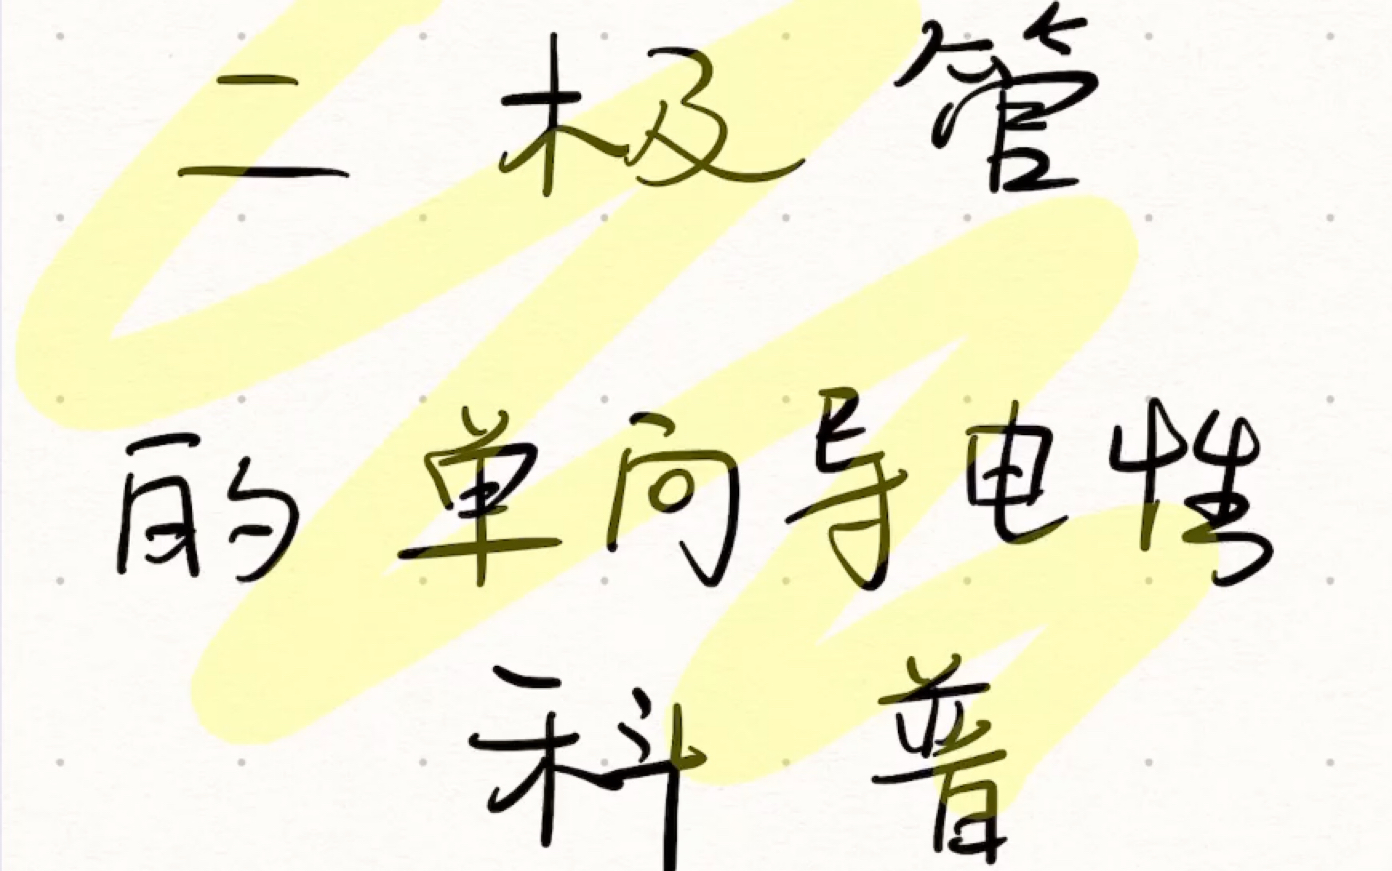 二极管
的单向导电性
科普